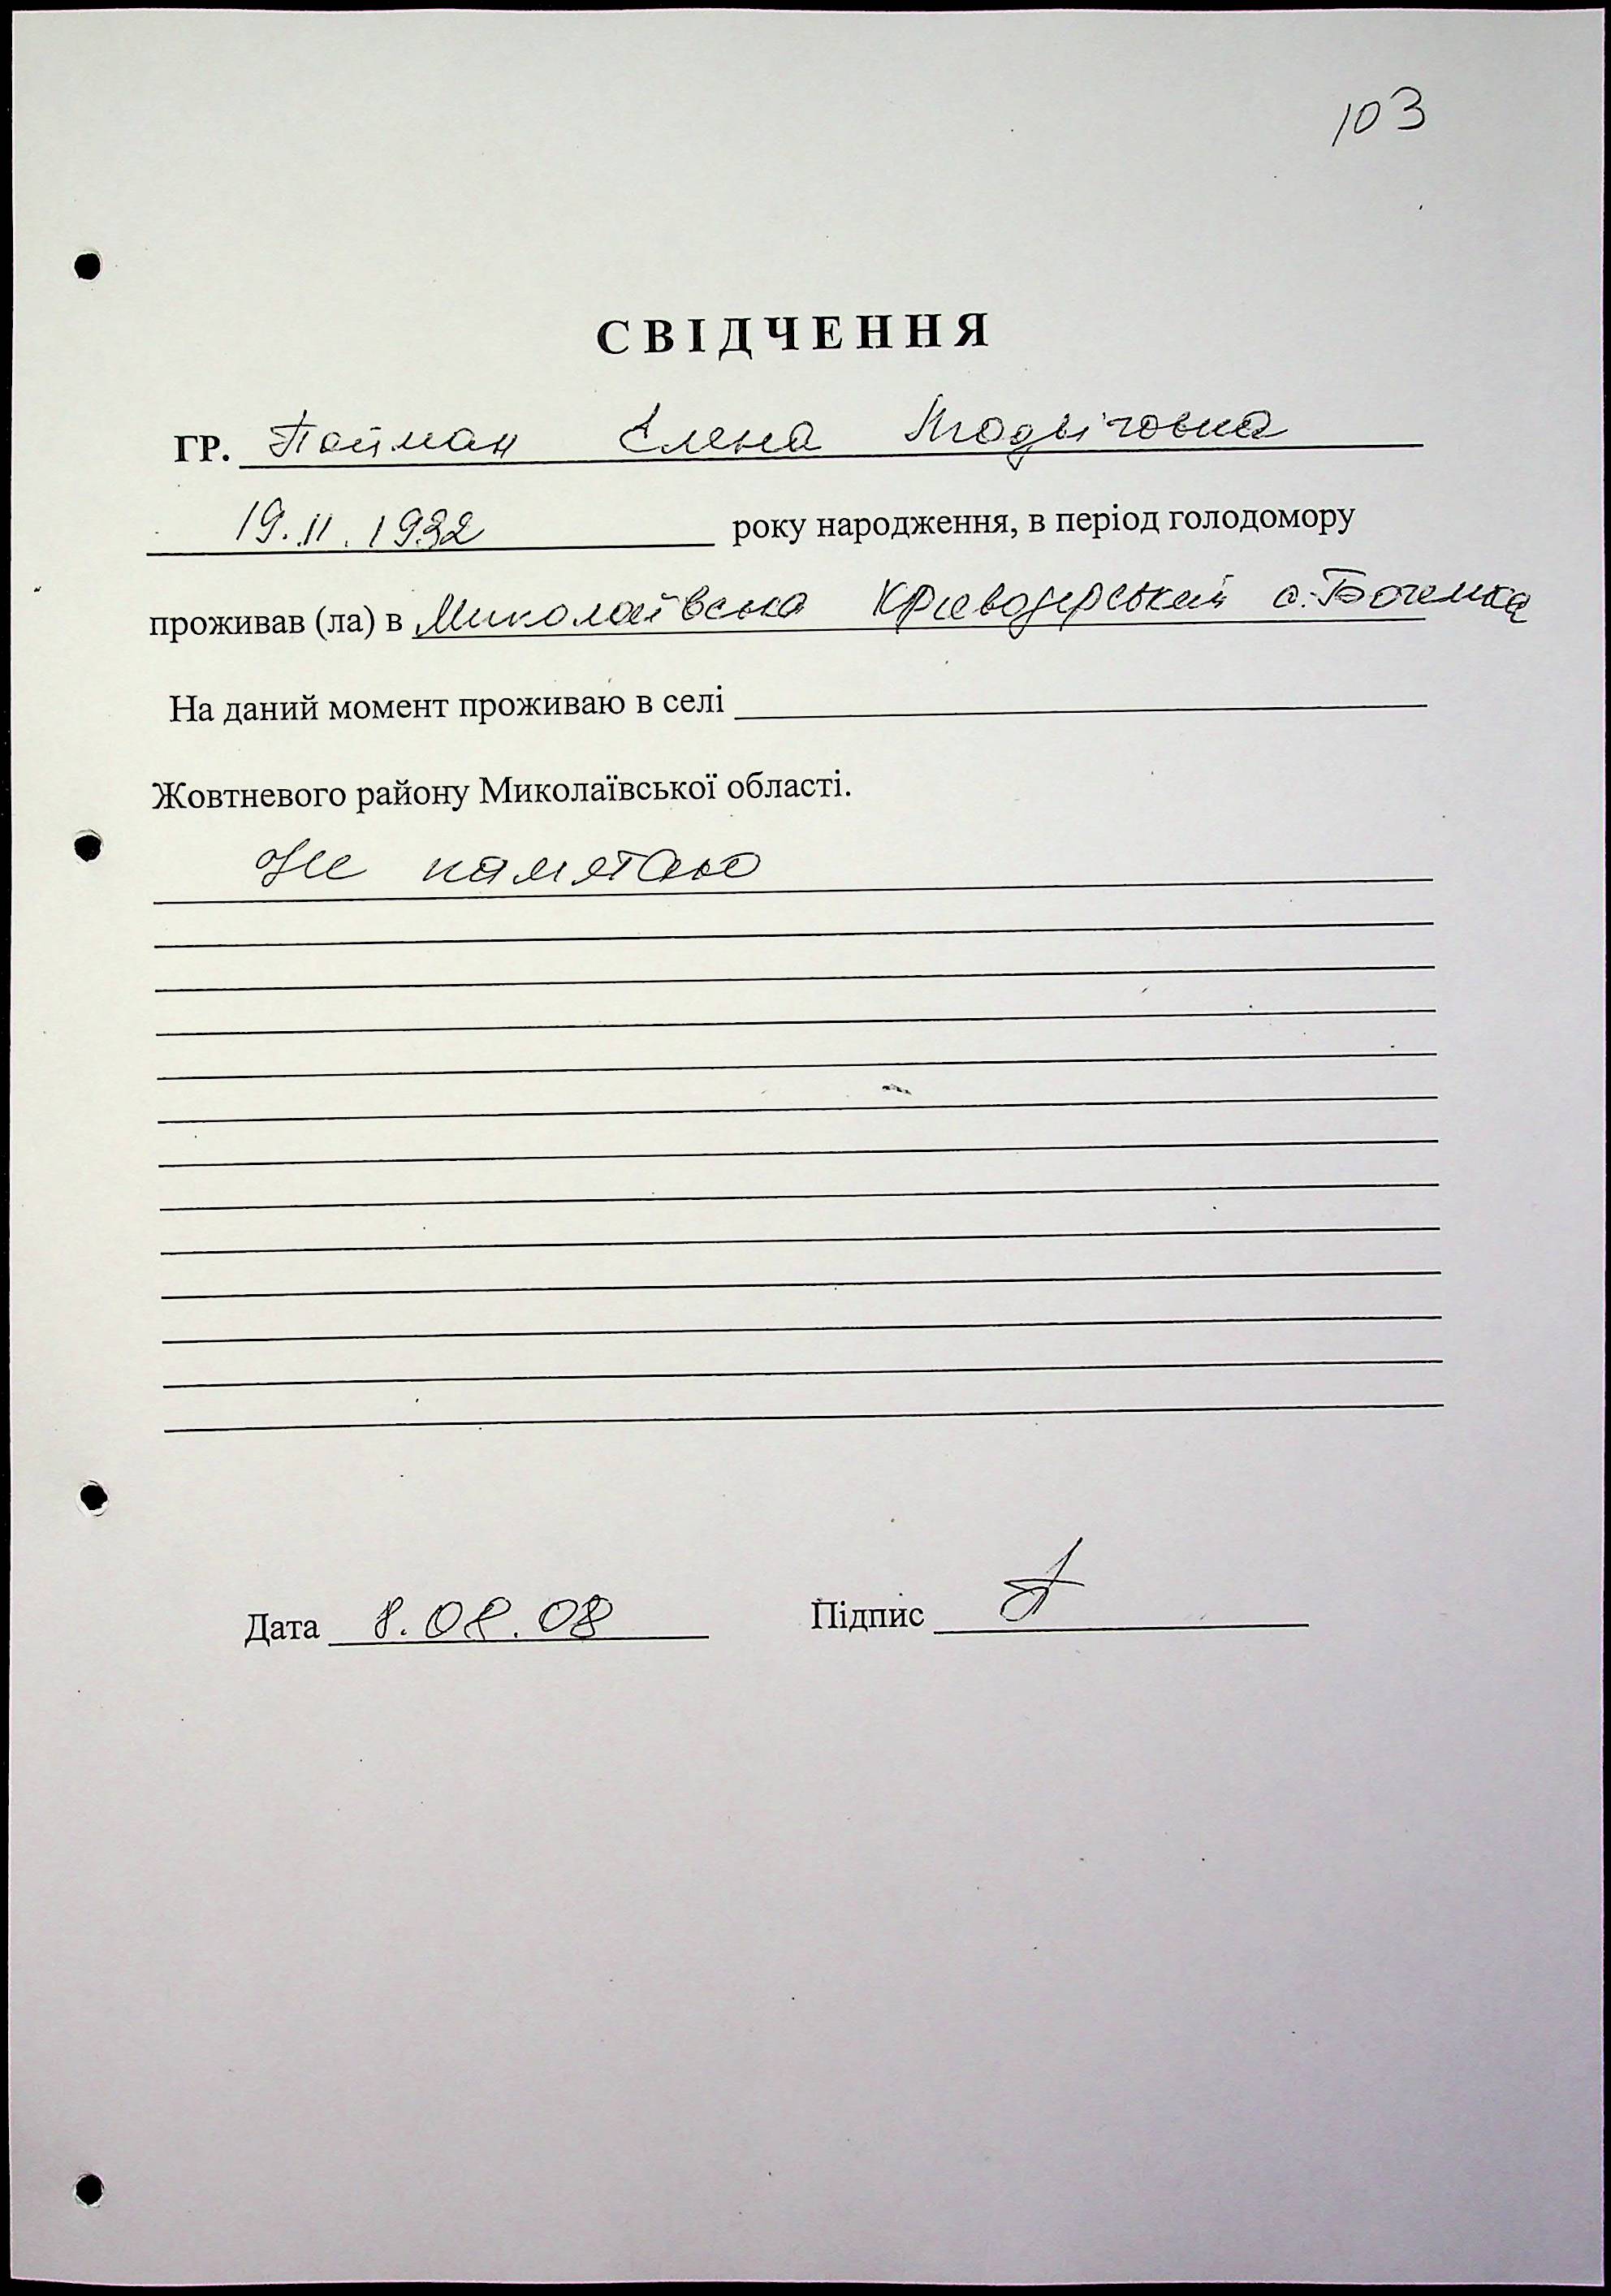 103
СВІДЧЕННЯ
ГР. Пойман Елена
19.11.1932 року народження, в період голодомору
проживав (ла) в Миколаївська
На даний момент проживаю в селі
Жовтневого району Миколаївської області.
Не памятаю
Дата 8.08.08 Підпис